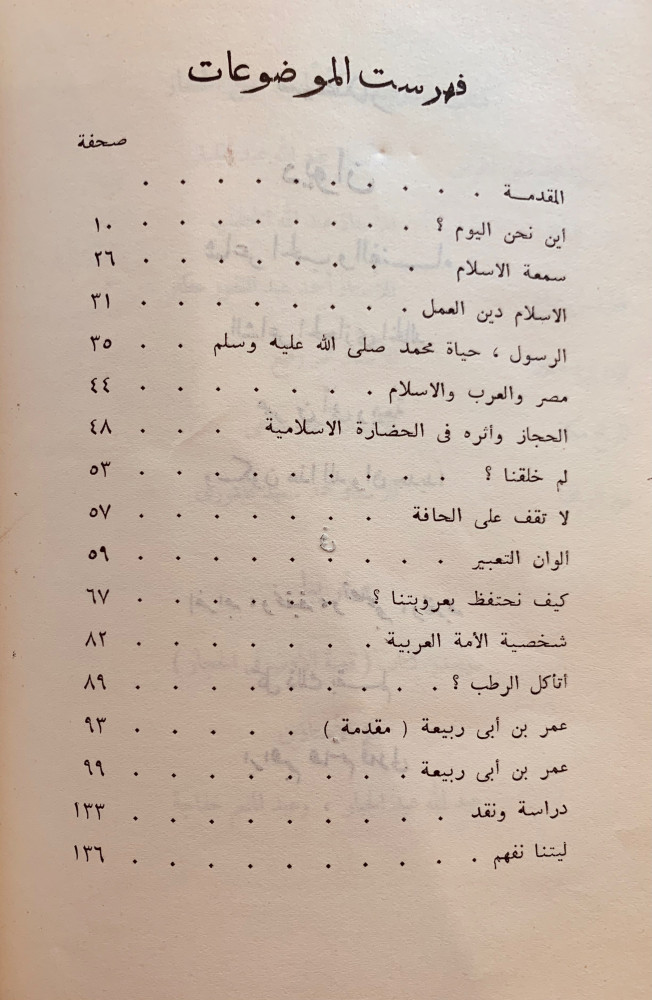 فهرست الموضوعات
صحفة
المقدمة . . . . . . . . .
اين نحن اليوم ؟ . . . . . . . . ١٠
سمعة الاسلام . . . . . . . . ٢٦
الاسلام دين العمل . . . . . . . ٣١
الرسول ، حياة محمد صلى الله عليه وسلم . . ٣٥
مصر والعرب والاسلام . . . . . . . ٤٤
الحجاز وأثره فى الحضارة الاسلامية . . . ٤٨
لم خلقنا ؟ . . . . . . . . . ٥٣
لا تقف على الحافة . . . . . . . ٥٧
الوان التعبير . . . . . . . . . ٥٩
كيف نحتفظ بعروبتنا ؟ . . . . . . ٦٧
شخصية الأمة العربية . . . . . . . ٨٢
أتأكل الرطب ؟ . . . . . . . . ٨٩
عمر بن أبى ربيعة ( مقدمة ) . . . . . ٩٣
عمر بن أبى ربيعة . . . . . . . . ٩٩
دراسة ونقد . . . . . . . . . ١٣٣
ليتنا نفهم . . . . . . . . . ١٣٦